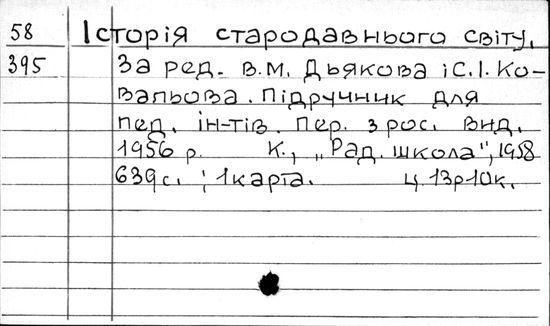 58 Історія стародавнього світу.
395 За ред. В.М. Дьякова і С.І. Ко-
вальова. Підручник для
пед. ін-тів. Пер. з рос. вид.
1956 р. К., „Рад. школа", 1958
639с. ; 1 карта. Ц. 13р10к.